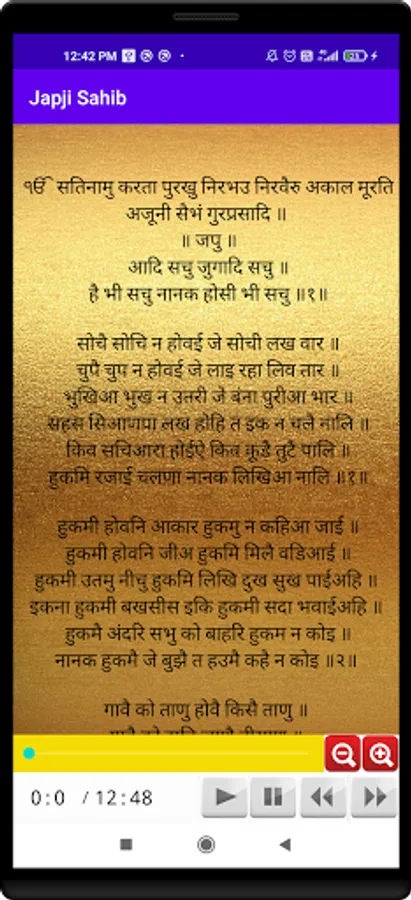 12:42 PM
Japji Sahib
ੴ सतिनामु करता पुरखु निरभउ निरवैरु अकाल मूरति
अजूनी सैभं गुरप्रसादि ॥
॥ जपु ॥
आदि सचु जुगादि सचु ॥
है भी सचु नानक होसी भी सचु ॥१॥
सोचै सोचि न होवई जे सोची लख वार ॥
चुपै चुप न होवई जे लाइ रहा लिव तार ॥
भुखिआ भुख न उतरी जे बंना पुरीआ भार ॥
सहस सिआणपा लख होहि त इक न चलै नालि ॥
किव सचिआरा होईऐ किव कूड़ै तुटै पालि ॥
हुकमि रजाई चलणा नानक लिखिआ नालि ॥१॥
हुकमी होवनि आकार हुकमु न कहिआ जाई ॥
हुकमी होवनि जीअ हुकमि मिलै वडिआई ॥
हुकमी उतमु नीचु हुकमि लिखि दुख सुख पाईअहि ॥
इकना हुकमी बखसीस इकि हुकमी सदा भवाईअहि ॥
हुकमै अंदरि सभु को बाहरि हुकम न कोइ ॥
नानक हुकमै जे बुझै त हउमै कहै न कोइ ॥२॥
गावै को ताणु होवै किसै ताणु ॥
0:0 / 12:48